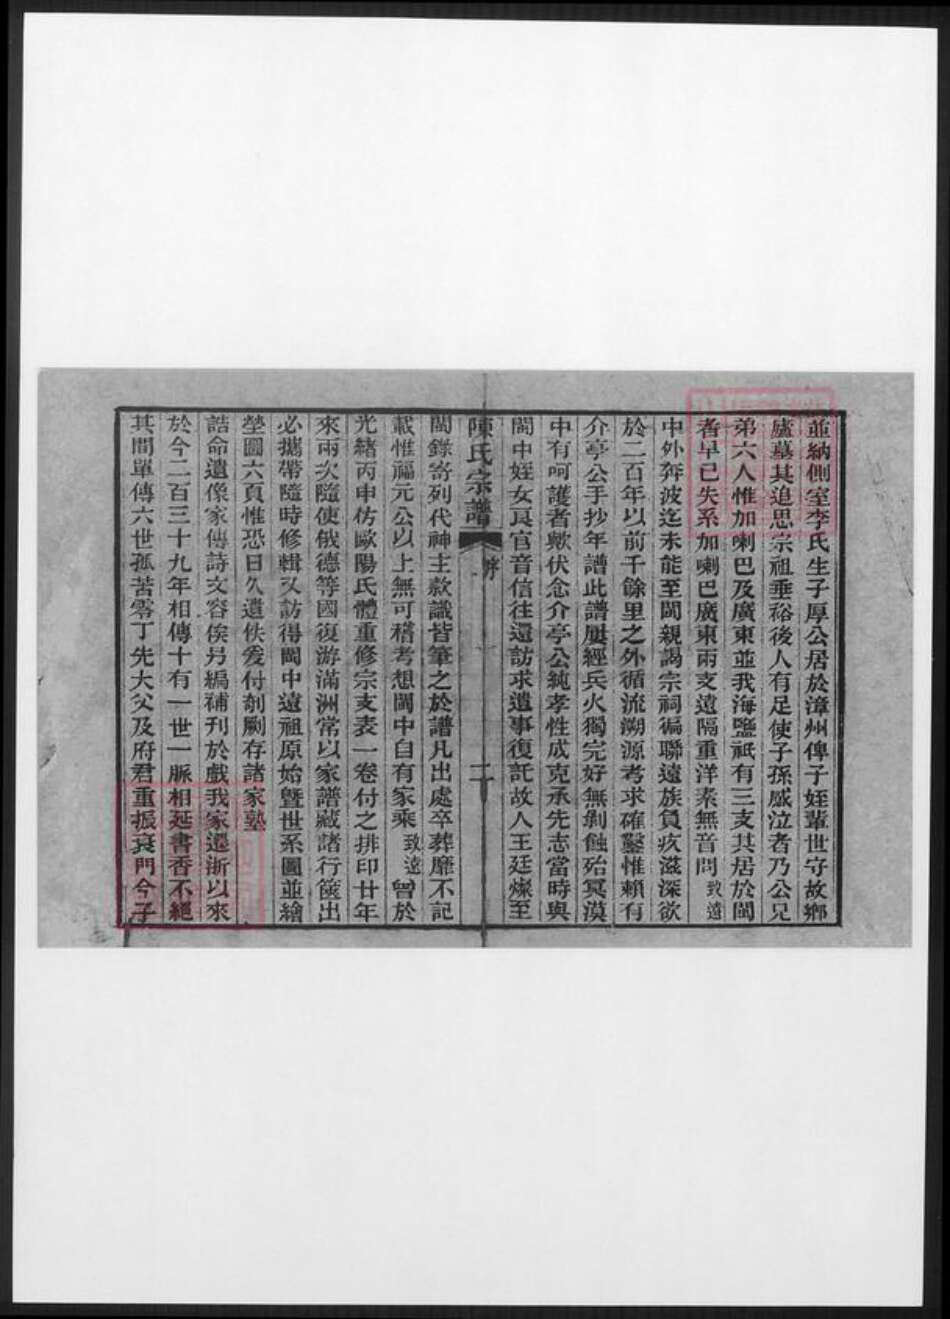 並納側室李氏生子厚公居於漳州俾子姪輩世守故鄉
廬墓其追思宗祖垂裕後人有足使子孫感泣者乃公兄
弟六人惟加喇巴及廣東並我海鹽祇有三支其居於閩
者早已失系加喇巴廣東兩支遠隔重洋素無音問致遠
中外奔波迄未能至閩親謁宗祠徧聯遠族負疚滋深欲
於二百年以前千餘里之外循流溯源考求確鑿惟賴有
介亭公手抄年譜此譜屢經兵火獨完好無剝蝕殆冥漠
中有呵護者歟伏念介亭公純孝性成克承先志當時與
閩中姪女真官音信往還訪求遺事復託故人王廷燦至
陳氏宗譜 序 二
閩錄寄列代神主款識皆筆之於譜凡出處卒葬靡不記
載惟福元公以上無可稽考想閩中自有家乘致遠曾於
光緒丙申仿歐陽氏體重修宗支表一卷付之排印廿年
來兩次隨使俄德等國復游滿洲常以家譜藏諸行篋出
必攜帶隨時修輯又訪得閩中遠祖原始暨世系圖並繪
塋圖六頁惟恐日久遺佚爰付剞劂存諸家塾
誥命遺像家傳詩文容俟另編補刊於戲我家遷浙以來
於今二百三十九年相傳十有一世一脈相延書香不絕
其間單傳六世孤苦零丁先大父及府君重振衰門今子